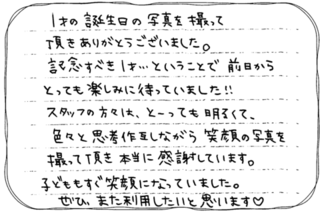 1才の誕生日の写真を撮って
頂きありがとうございました。
記念すべき1才…ということで前日から
とっても楽しみに待っていました!!
スタッフの方々は、とーっても明るくて、
色々と思考作互しながら笑顔の写真を
撮って頂き本当に感謝しています。
子どももすぐ笑顔になっていました。
ぜひ、また利用したいと思います♡